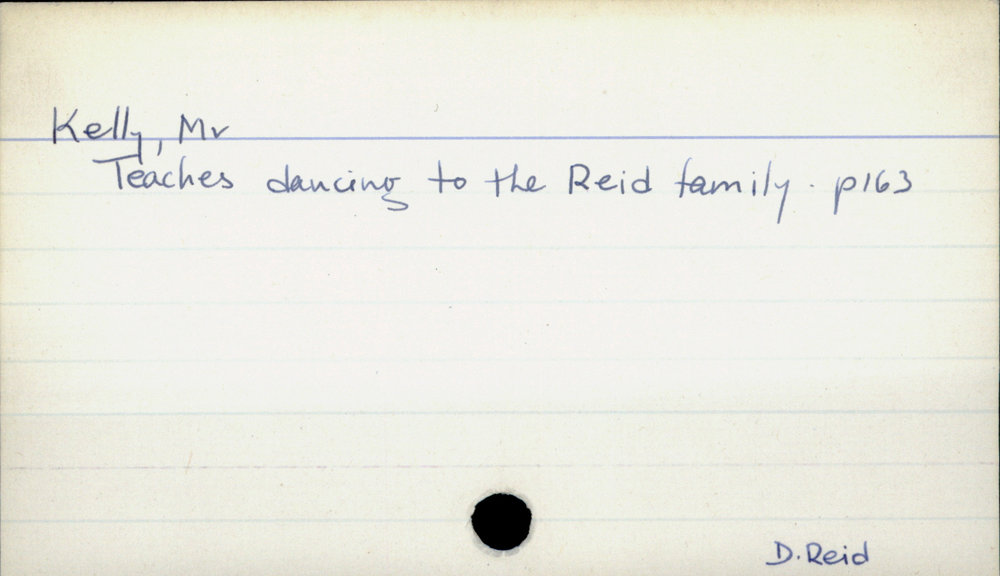 Kelly, Mr
Teaches dancing to the Reid family. p163
D. Reid